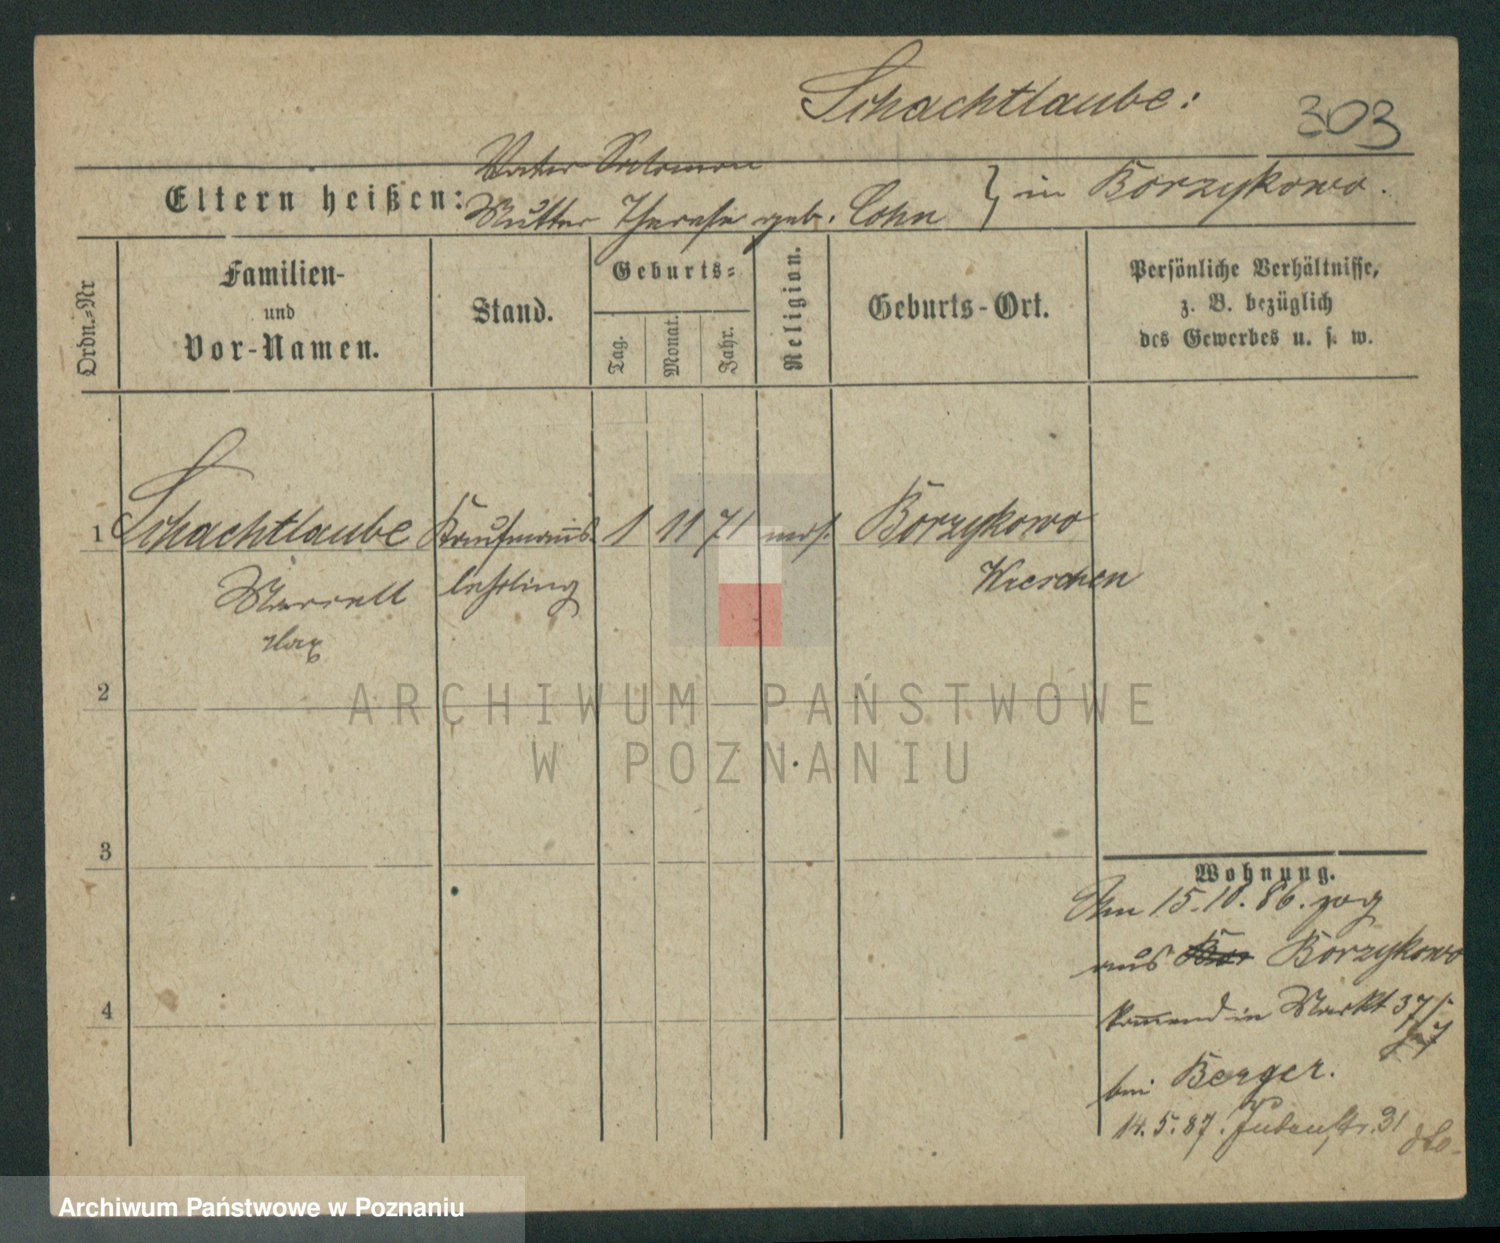 Schachtlaube:
303
Vater Salomon
Eltern heißen:
Mutter Therese geb. Cohn } in Borzykowo.
Ordn.=Nr
Familien-
und
Vor-Namen.
Stand.
Geburts=
Tag.
Monat.
Jahr.
Religion.
Geburts-Ort.
Persönliche Verhältnisse,
z. B. bezüglich
des Gewerbes u. s. w.
1 Schachtlaube Kaufmanns- 1 11 71 mos. Borzykowo
lehrling Wreschen
2
3
4
Wohnung.
Am 15.10.86. zog
aus Borzykowo
kommend in Markt 37/
bei Berger.
14.5.87. Judenstr. 31
ARCHIWUM PAŃSTWOWE
W POZNANIU
Archiwum Państwowe w Poznaniu